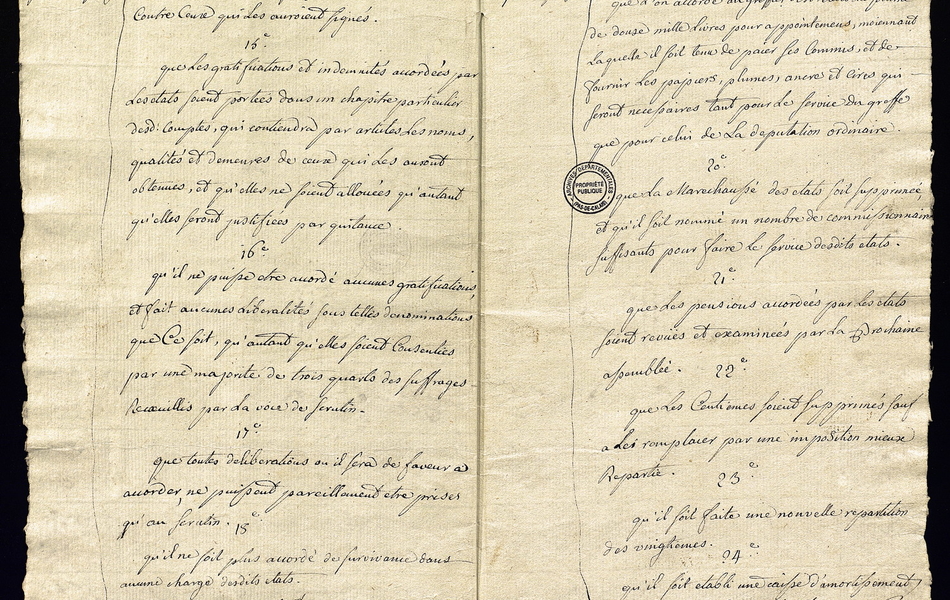 Contre Ceux qui Les auroient signés.
15e.
que Les gratifications et indemnités accordées par
Les etats soient portées dans un chapitre particulier
desd: Comptes, qui contiendra par articles Les noms,
qualités et demeures de ceux qui Les auront
obtenues, et qu'elles ne soient allouées qu'autant
qu'elles seront justifiées par quitance.
16e.
qu'il ne puisse etre accordé aucunes gratifications,
et fait aucunes Liberalités sous telles denominations
que Ce soit, qu'autant qu'elles soient Consenties
par une majorité de trois quarts des suffrages
Recueillis par La voie de scrutin.
17e.
que toutes deliberations ou il sera de faveur a
accorder, ne puissent pareillement etre prises
qu'au scrutin.
18e.
qu'il ne soit plus accordé de survivance dans
aucune charge desdits etats.
de douze mille Livres pour appointemens, moiennant
Laquelle il soit tenu de paier ses Commis, et de
fournir Les papiers, plumes, ancre et Cires qui
seront necessaires tant pour Le service du greffe
que pour celui de La deputation ordinaire.
20e.
que La Marechaussé des etats soit supprimée
et qu'il soit nommé un nombre de commissionnaires
suffisants pour faire Le service desdits etats.
21e.
que Les pensions accordées par Les etats
soient revues et examinées par La Prochaine
assemblée.
22e.
que Les Centiemes soient supprimés sauf
a Les remplacer par une imposition mieux
Repartie.
23e.
qu'il soit faite une nouvelle repartition
des vingtiemes.
24e.
qu'il soit etabli une caisse d'amortissement
ARCHIVES DÉPARTEMENTALES
PROPRIÉTÉ
PUBLIQUE
PAS-DE-CALAIS